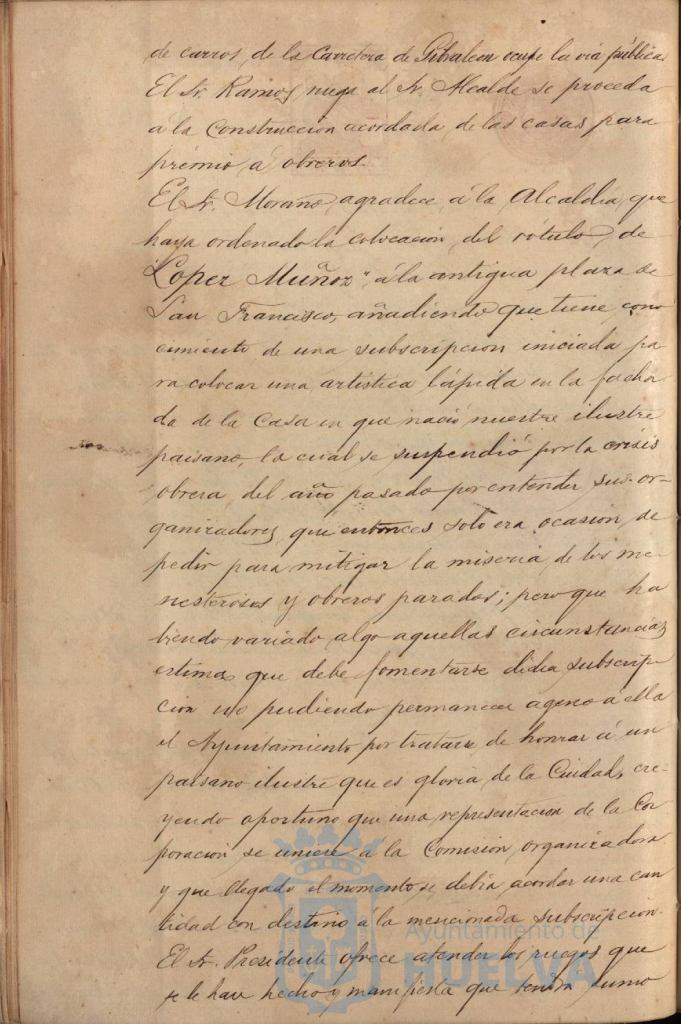 de carros, de la Carretera de Gibraleon ocupe la via pública.
El Sr. Ramos, ruega al Sr. Alcalde se proceda
á la Construccion acordada, de las casas para
prémio á obreros.
El Sr. Moraño, agradece, á la Alcaldia, que
haya ordenado la colocación, del rótulo, de
"Lopez Muñoz", á la antigua plaza de
San Francisco, añadiendo que tiene, cono
cimiento de una subscripcion iniciada pa
ra colocar una artistica lápida en la facha
da de la Casa en que nació nuestro ilustre
paisano, la cual se suspendió por la crisis
obrera, del año pasado por entender sus or-
ganizadores, que entonces solo era ocasion, de
pedir para mitigar la miseria, de los me-
nesterosos y obreros parados; pero que ha
biendo variado algo aquellas circunstancias
estima, que debe fomentarse dicha subscrip
cion no pudiendo permanecer ageno á ella
el Ayuntamiento por tratarse de honrar á un
paisano ilustre que es gloria, de la Ciudad, cre-
yendo oportuno que una representacion de la Cor
poracion se uniese á la Comision, organizadora
y que llegado el momento se debia acordar una can
tidad con destino á la mencionada subscripcion.
El Sr. Presidente ofrece atender los ruegos que
se le han hecho y manifiesta que tendrá sumo
Ayuntamiento de
HUELVA